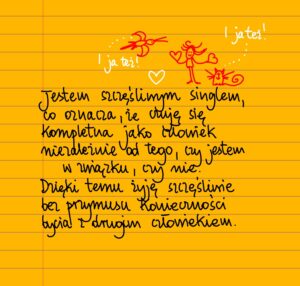 I ja też!
I ja też!
Jestem szczęśliwym singlem,
co oznacza, że czuję się
kompletna jako człowiek
niezależnie od tego, czy jestem
w związku, czy nie.
Dzięki temu żyję szczęśliwie
bez przymusu konieczności
bycia z drugim człowiekiem.